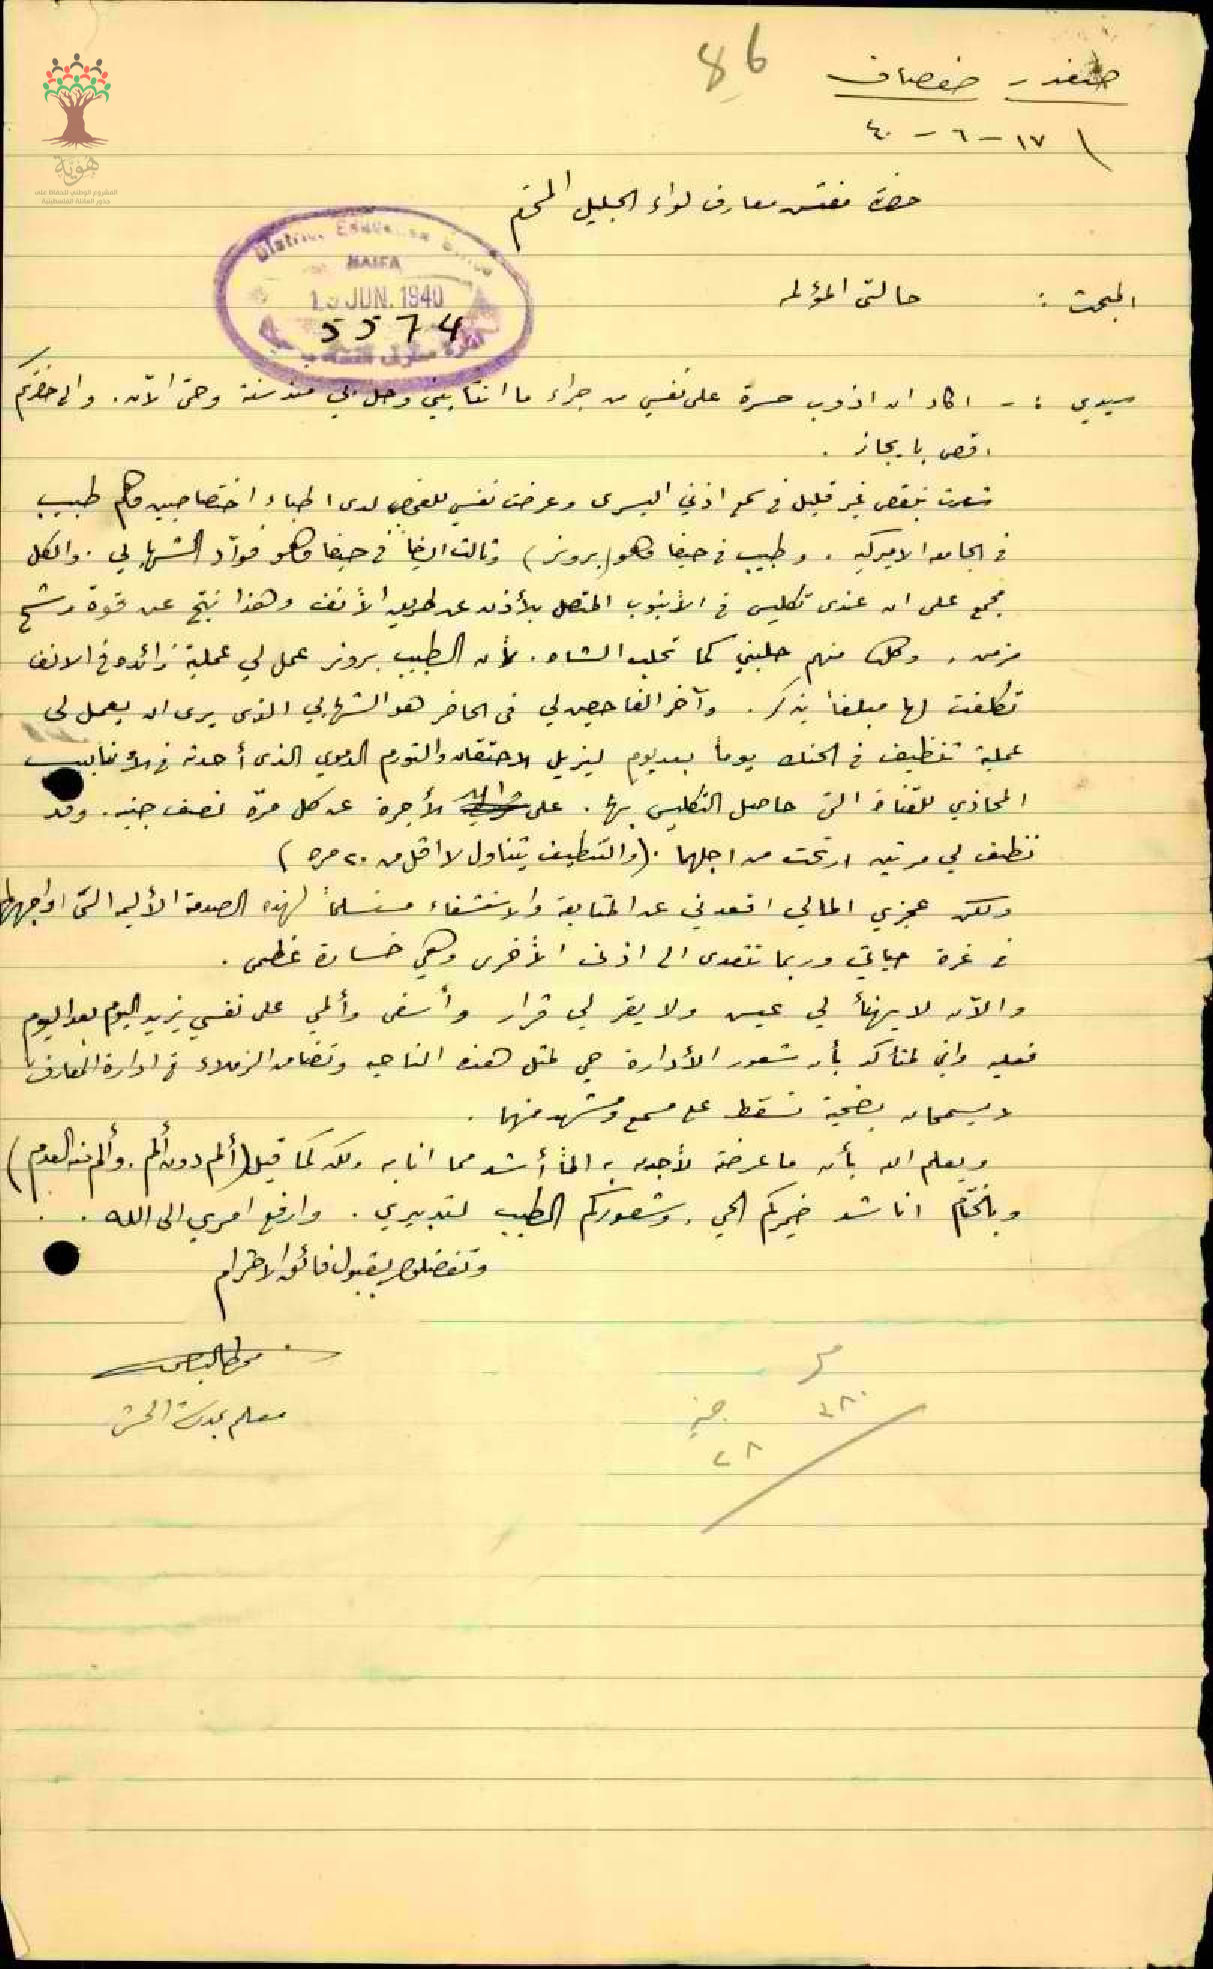 86
صفد - صفصاف
١٧ - ٦ - ٤٠
هوية
المشروع الوطني للحفاظ على
جذور العائلة الفلسطينية
حضرة مفتش معارف لواء الجليل المحترم
District Education Office
HAIFA
JUN. 1940
5574
المبحث : حالتي المؤلمة
سيدي :- اكاد ان اذوب حسرة على نفسي من جراء ما انتابني وحل بي منذ سنة وحتى الآن. والى حضرتكم
اقص بايجاز .
شعرت بنقص غير قليل في سمع اذني اليسرى وعرضت نفسي للفحص لدى اطباء اختصاصيين وهم طبيب
في الجامعه الاميركيه . وطبيب في حيفا وهو (برونر) وثالث ايضاً في حيفا وهو فوآد الشهابي . والكل
مجمع على ان عندي تكليس في الأنبوب المتصل بالأذن عن طريق الأنف وهذا نتج عن قوة رشح
مزمن . وكل منهم حلبني كما تحلب الشاه . لأن الطبيب برونر عمل لي عملية زائده في الانف
تكلفت لها مبلغاً يذكر . وآخر الفاحصين لي في الحاضر هو الشهابي الذي يرى ان يعمل لي
عملية تنظيف في الحنك يوماً بعد يوم ليزيل الاحتقان والتورم الدموي الذي أحدثه في الانابيب
المحاذي للقناة التي حاصل التكليس بها . على الأجرة عن كل مرّة نصف جنيه . وقد
نظف لي مرتين ارتحت من اجلهما . (والتنظيف يتناول لا اقل من ٢٠ مره)
ولكن عجزي المالي اقعدني عن المتابعة والاستشفاء مستسلماً لهذه الصدمة الأليمه التي اواجهها
في غرة حياتي وربما تتعدى الى اذني الأخرى وهي خسارة عظمى .
والآن لا يهنأ لي عيش ولا يقر لي قرار وأسفي وألمي على نفسي يزيد اليوم بعد اليوم
فعليه واني لمتأكد بأن شعور الأدارة حي لمثل هذه الناحيه وتضامن الزملاء في ادارة المعارف
لا يسمحان بضحية تسقط على مسمع ومشهد منهما .
ويعلم الله بأن ما عرضته لأجد به الماً أشد مما انا به ولكن كما قيل (ألم دون ألم . وألم منه العدم)
وبالختام اناشد ضميركم الحي . وشعوركم الطيب لتدبيري . وارفع امري الى الله .
وتفضلوا بقبول فائق الاحترام
معلم بمدرسة الجش
جنيه
٢٨
٣٨٠